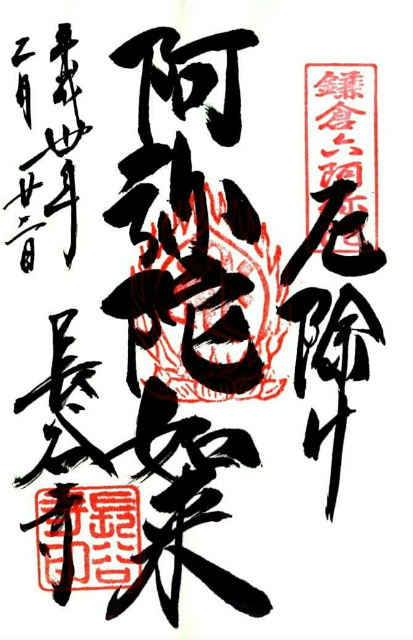 鎌倉六阿弥陀
厄除け
阿弥陀如来
平成卅年
二月廿二日
長谷寺
長谷寺印